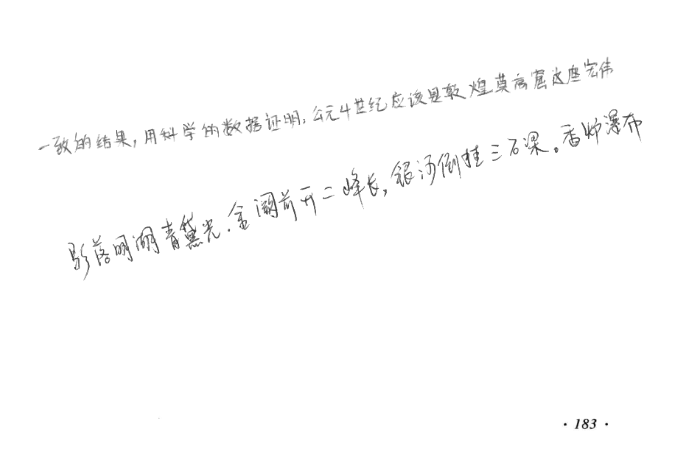 一致的结果，用科学的数据证明，公元4世纪应该是敦煌莫高窟这座宏伟
影落明湖青黛光．金阙前开二峰长，银河倒挂三石梁。香炉瀑布
· 183 ·